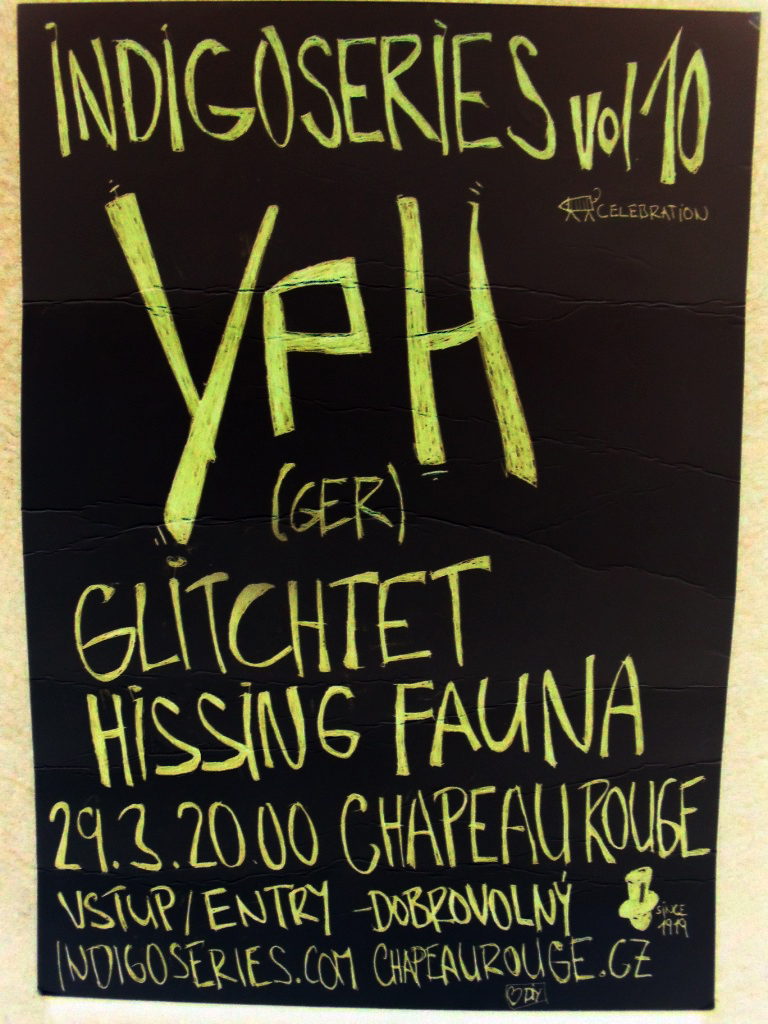 INDIGOSERIES vol 10
CELEBRATION
YPH
(GER)
GLITCHTET
HISSING FAUNA
29.3.20.00 CHAPEAU ROUGE
VSTUP/ENTRY -DOBROVOLNÝ
SINCE
1919
INDIGOSERIES.COM CHAPEAUROUGE.CZ
DIY